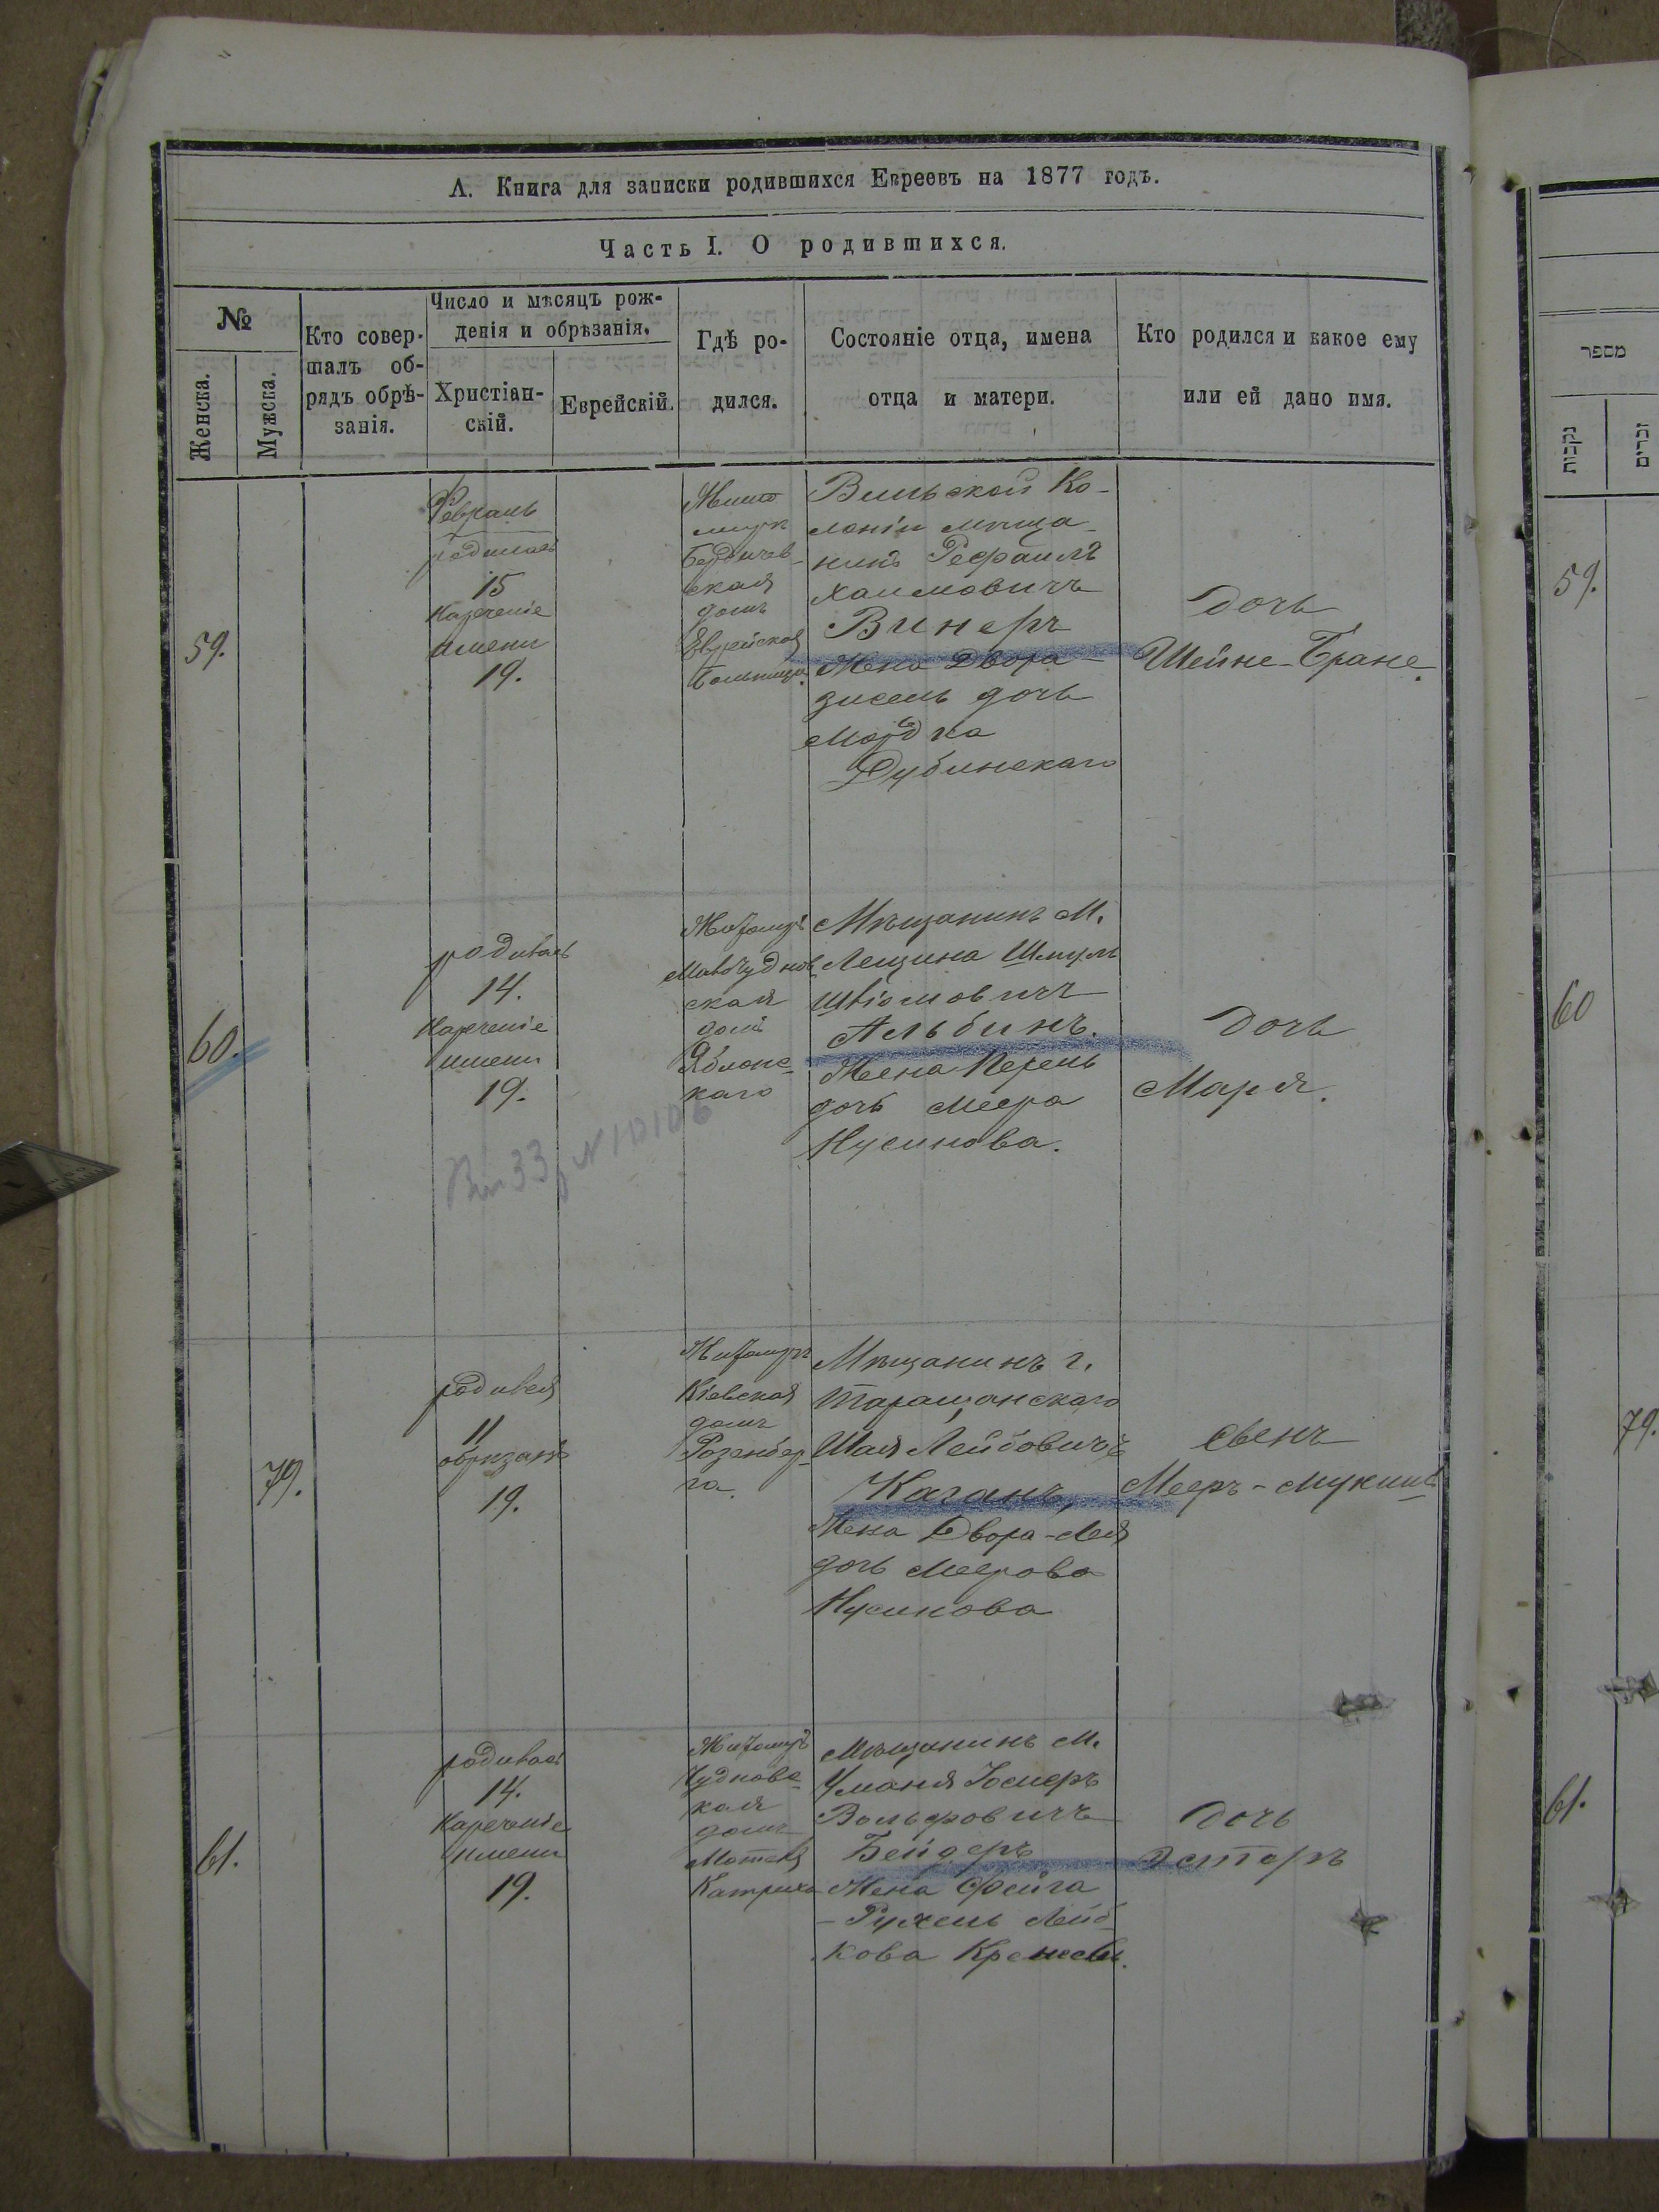 А. Книга для записки родившихся Евреевъ на 1877 годъ.
Часть I. О родившихся.
№
Женска.
Мужска.
Кто совер-
шалъ об-
рядъ обрѣ-
занія.
Число и мѣсяцъ рож-
денія и обрѣзанія.
Христіан-
скій.
Еврейскій.
Гдѣ ро-
дился.
Состояніе отца, имена
отца и матери.
Кто родился и какое ему
или ей дано имя.
59.
Февраль
родилась
15
Нареченіе
имени
19.
Бердичев-
ская
домъ
Еврейская
Больница.
Вильской Ко-
лоніи мѣща-
нинъ Рефаилъ
Хаимовичъ
Винеръ
Жена Двора-
зисель дочь
Мордка
Дубинскаго
Дочь
Шейне-Бране.
60.
родилась
14.
Нареченіе
имени
19.
Житомиръ
ская
домъ
Яблонс-
каго
Мѣщанинъ М.
Лещина Шмуль
Альбинъ.
Жена Перель
дочь Меера
Нусинова.
Дочь
Маря.
79.
родився
11
обризанъ
19.
Житомиръ
Кіевская
домъ
Розенбер-
га.
Мѣщанинъ г.
Таращанскаго
Шая Лейбовичъ
Каганъ,
Жена Двора-Лея
дочь Меерова
Нусинова
Сынъ
61.
родилась
14.
Нареченіе
имени
19.
Житомиръ
Чудновс-
кая
домъ
Мѣщанинъ М.
Уманя
Вольфовичъ
Бейдеръ
Жена Фейга
-Рухель Лейб-
кова
Дочь
Эстеръ
מספר
נקבות
זכרים
59.
60
79.
61.